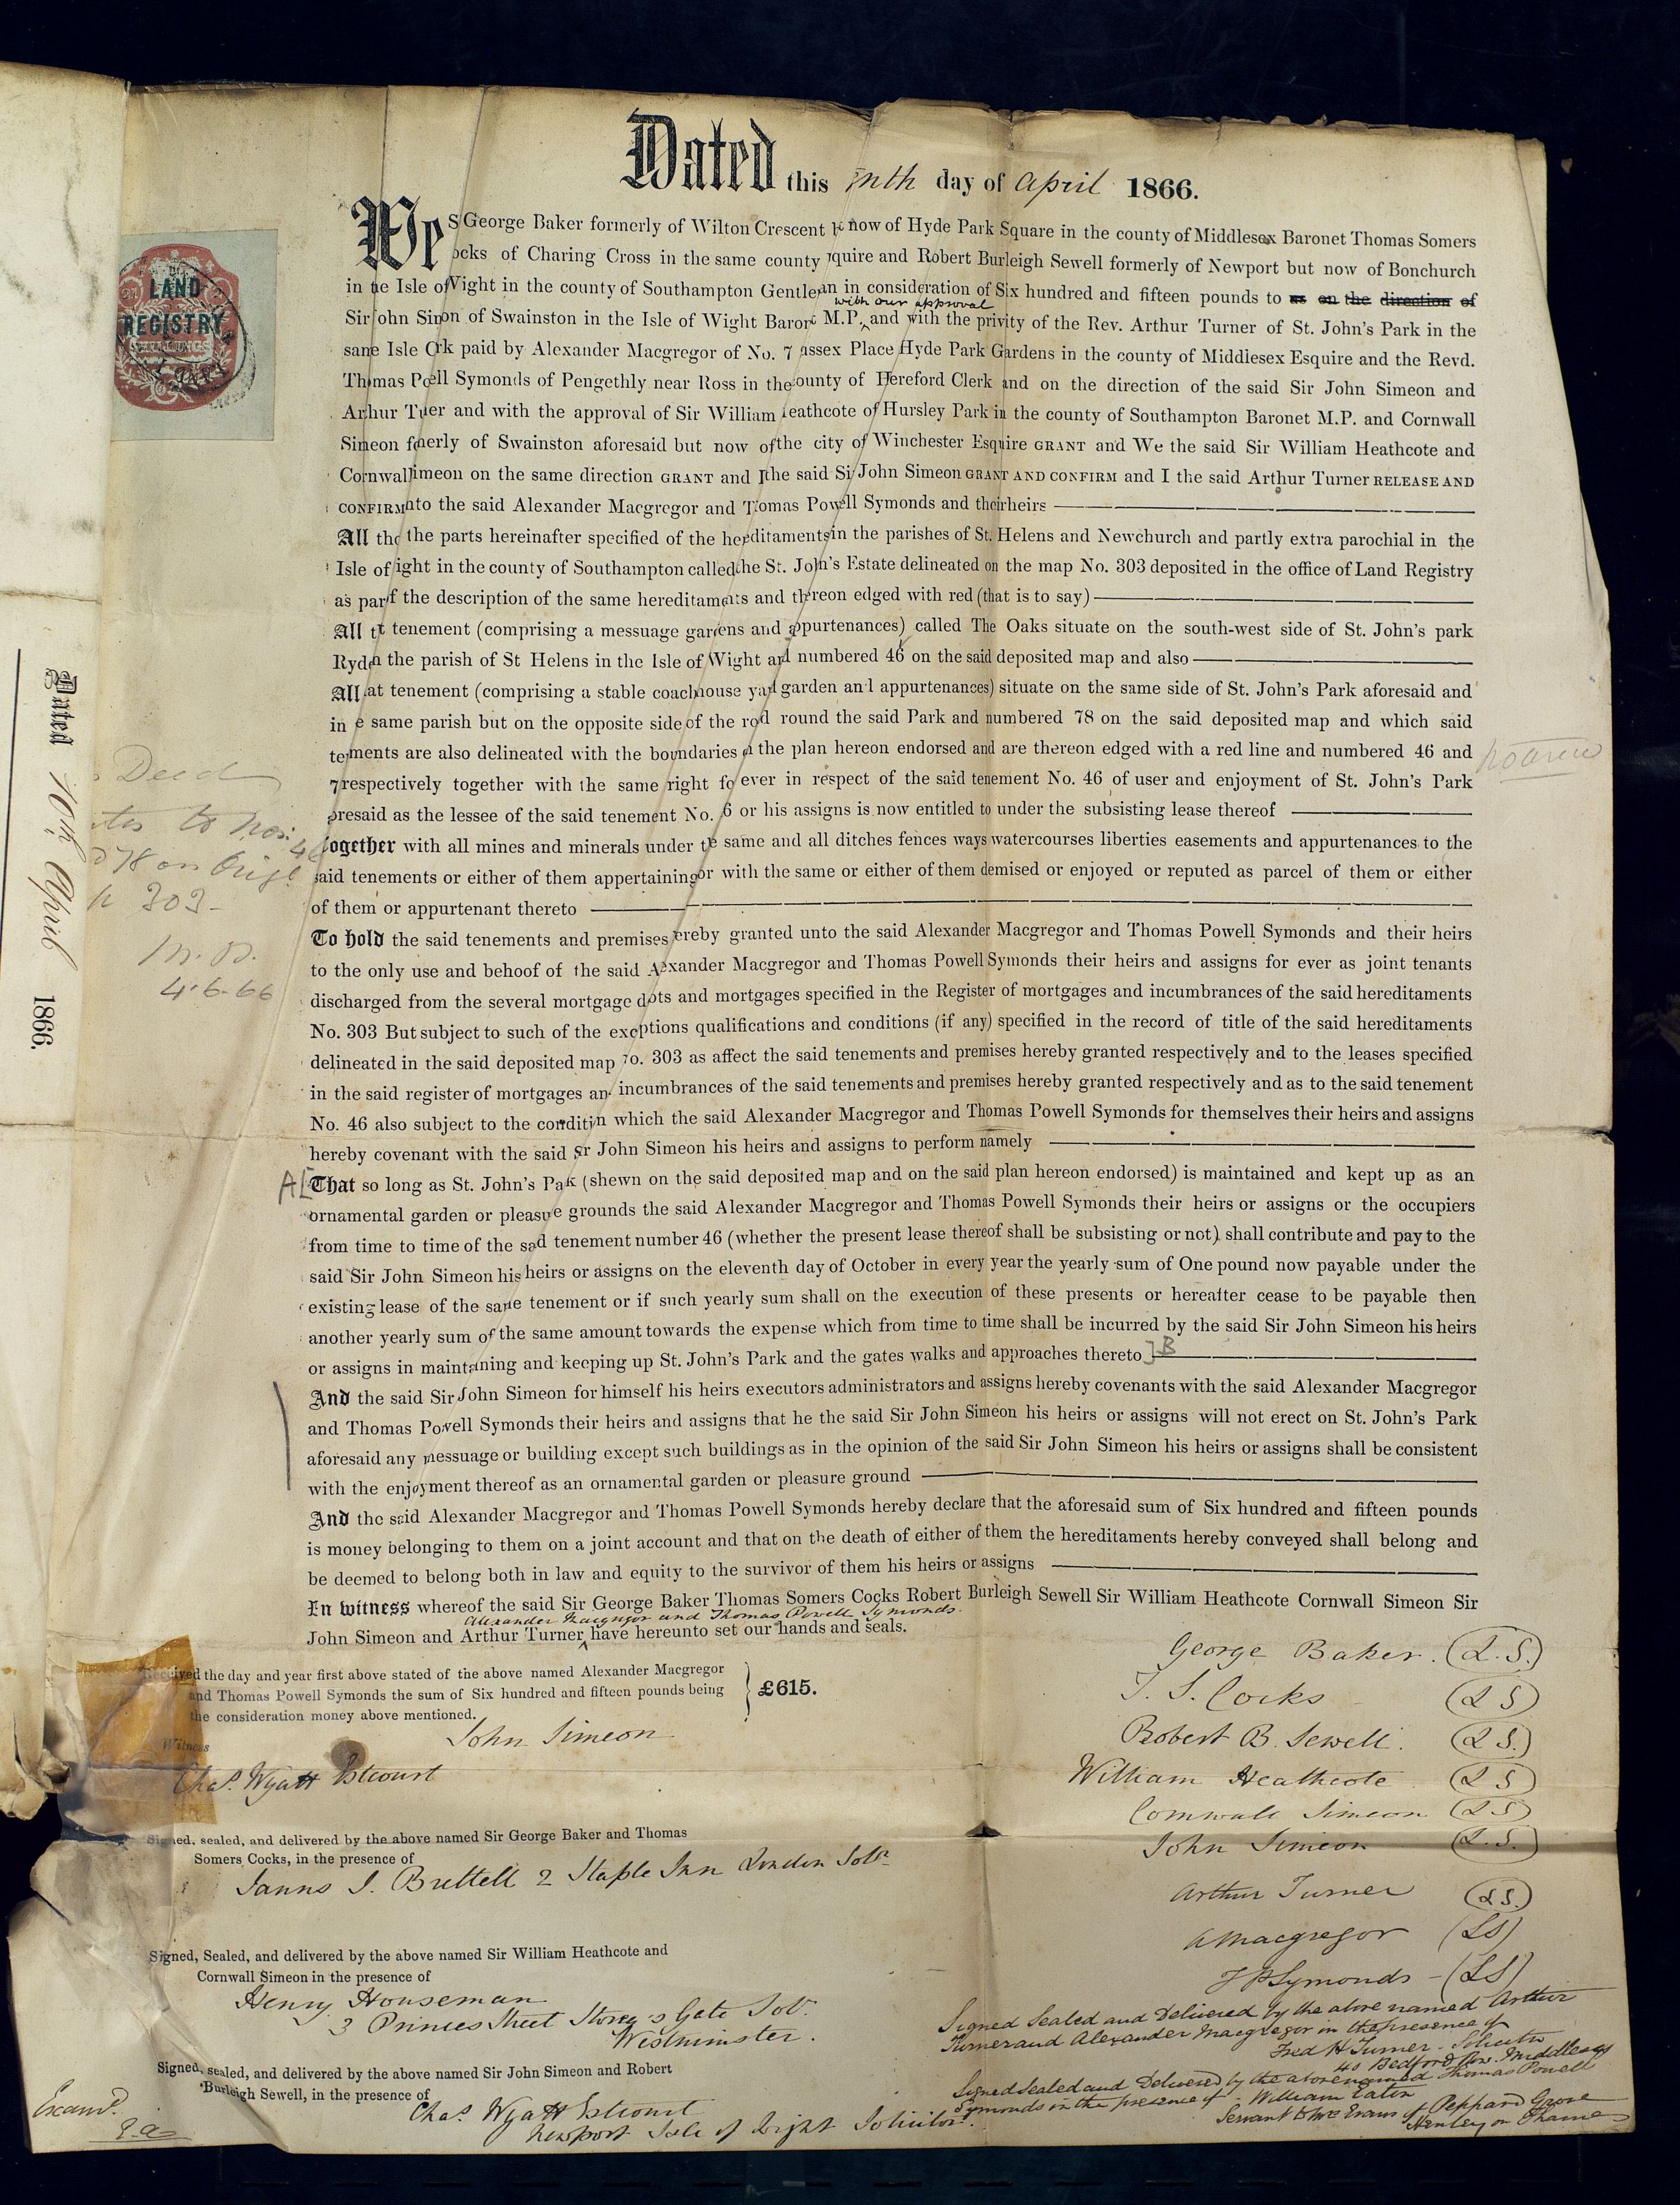 Dated this day of April 1866.
We S George Baker formerly of Wilton Crescent now of Hyde Park Square in the county of Middlesex Baronet Thomas Somers
ocks of Charing Cross in the same county quire and Robert Burleigh Sewell formerly of Newport but now of Bonchurch
in Isle of Wight in the county of Southampton Gentle an in consideration of Six hundred and fifteen pounds to as on the direction of
with our approval
Sir John of Swainston in the Isle of Wight M.P. and with the privity of the Rev. Arthur Turner of St. John's Park in the
Isle paid by Alexander Macgregor of No. 7 ssex Place Hyde Park Gardens in the county of Middlesex Esquire and the Revd.
Thomas Symonds of Pengethly near Ross in the ounty of Hereford Clerk and on the direction of the said Sir John Simeon and
Arthur and with the approval of Sir William eathcote of Hursley Park in the county of Southampton Baronet M.P. and Cornwall
Simeon of Swainston aforesaid but now of the city of Winchester Esquire GRANT and We the said Sir William Heathcote and
Cornwall imeon on the same direction GRANT and I the said Si John Simeon GRANT AND CONFIRM and I the said Arthur Turner RELEASE AND
CONFIRM nto the said Alexander Macgregor and T omas Powell Symonds and their heirs
All tho the parts hereinafter specified of the hereditaments in the parishes of St. Helens and Newchurch and partly extra parochial in the
Isle of ight in the county of Southampton called the St. John's Estate delineated on the map No. 303 deposited in the office of Land Registry
as par f the description of the same hereditaments and thereon edged with red (that is to say)
All tenement (comprising a messuage gardens and appurtenances) called The Oaks situate on the south-west side of St. John's park
Ryde n the parish of St Helens in the Isle of Wight and numbered 46 on the said deposited map and also
All at tenement (comprising a stable coachhouse yard garden and appurtenances) situate on the same side of St. John's Park aforesaid and
in e same parish but on the opposite side of the ro d round the said Park and numbered 78 on the said deposited map and which said
te ments are also delineated with the boundaries the plan hereon endorsed and are thereon edged with a red line and numbered 46 and
7 respectively together with the same right for ever in respect of the said tenement No. 46 of user and enjoyment of St. John's Park
resaid as the lessee of the said tenement No. 6 or his assigns is now entitled to under the subsisting lease thereof
ogether with all mines and minerals under t e same and all ditches fences ways watercourses liberties easements and appurtenances to the
said tenements or either of them appertaining or with the same or either of them demised or enjoyed or reputed as parcel of them or either
of them or appurtenant thereto
To hold the said tenements and premises ereby granted unto the said Alexander Macgregor and Thomas Powell Symonds and their heirs
to the only use and behoof of the said A exander Macgregor and Thomas Powell Symonds their heirs and assigns for ever as joint tenants
discharged from the several mortgage d ts and mortgages specified in the Register of mortgages and incumbrances of the said hereditaments
No. 303 But subject to such of the exc ptions qualifications and conditions (if any) specified in the record of title of the said hereditaments
delineated in the said deposited map o. 303 as affect the said tenements and premises hereby granted respectively and to the leases specified
in the said register of mortgages an incumbrances of the said tenements and premises hereby granted respectively and as to the said tenement
No. 46 also subject to the conditi n which the said Alexander Macgregor and Thomas Powell Symonds for themselves their heirs and assigns
hereby covenant with the said Sr John Simeon his heirs and assigns to perform namely
A[ That so long as St. John's Pa k (shewn on the said deposited map and on the said plan hereon endorsed) is maintained and kept up as an
ornamental garden or pleasu e grounds the said Alexander Macgregor and Thomas Powell Symonds their heirs or assigns or the occupiers
from time to time of the sa d tenement number 46 (whether the present lease thereof shall be subsisting or not) shall contribute and pay to the
said Sir John Simeon his heirs or assigns on the eleventh day of October in every year the yearly sum of One pound now payable under the
existing lease of the same tenement or if such yearly sum shall on the execution of these presents or hereafter cease to be payable then
another yearly sum of the same amount towards the expense which from time to time shall be incurred by the said Sir John Simeon his heirs
or assigns in maintaining and keeping up St. John's Park and the gates walks and approaches thereto ]B
And the said Sir John Simeon for himself his heirs executors administrators and assigns hereby covenants with the said Alexander Macgregor
and Thomas Powell Symonds their heirs and assigns that he the said Sir John Simeon his heirs or assigns will not erect on St. John's Park
aforesaid any messuage or building except such buildings as in the opinion of the said Sir John Simeon his heirs or assigns shall be consistent
with the enjoyment thereof as an ornamental garden or pleasure ground
And the said Alexander Macgregor and Thomas Powell Symonds hereby declare that the aforesaid sum of Six hundred and fifteen pounds
is money belonging to them on a joint account and that on the death of either of them the hereditaments hereby conveyed shall belong and
be deemed to belong both in law and equity to the survivor of them his heirs or assigns
In witness whereof the said Sir George Baker Thomas Somers Cocks Robert Burleigh Sewell Sir William Heathcote Cornwall Simeon Sir
Alexander Macgregor and Thomas Powell Symonds
John Simeon and Arthur Turner have hereunto set our hands and seals.
Received the day and year first above stated of the above named Alexander Macgregor
and Thomas Powell Symonds the sum of Six hundred and fifteen pounds being
the consideration money above mentioned.
£615.
John Simeon
Witness
Chas. Wyatt Estcourt
Signed, sealed, and delivered by the above named Sir George Baker and Thomas
Somers Cocks, in the presence of
J. Brettell 2 Staple Inn London Solr.
Signed, Sealed, and delivered by the above named Sir William Heathcote and
Cornwall Simeon in the presence of
Henry Houseman
3 Princes Street Storey's Gate Solr.
Westminster.
Signed, sealed, and delivered by the above named Sir John Simeon and Robert
Burleigh Sewell, in the presence of
Chas Wyatt Estcourt
Newport Isle of Wight Solicitor.
George Baker. (L.S.)
T. S. Cocks (L S)
Robert B. Sewell. (L S.)
William Heathcote (L S)
Cornwall Simeon (L S)
John Simeon (L.S.)
Arthur Turner (L S.)
A Macgregor (LS)
T P Symonds - (LS)
Signed Sealed and Delivered by the above named Arthur
Turner and Alexander Macgregor in the presence of
Fred H Turner - Solicitor
40 Bedford Row. Middlesex
Signed Sealed and Delivered by the abovenamed Thomas Powell
Symonds in the presence of - William Eaton
Servant to Mr Evans of Peppard Grove
Henley on Thames
Examd.
LAND
REGISTRY
Deed
to Nos:
46
78 on Origl.
303-
4.6.66
Dated 10th April 1866.